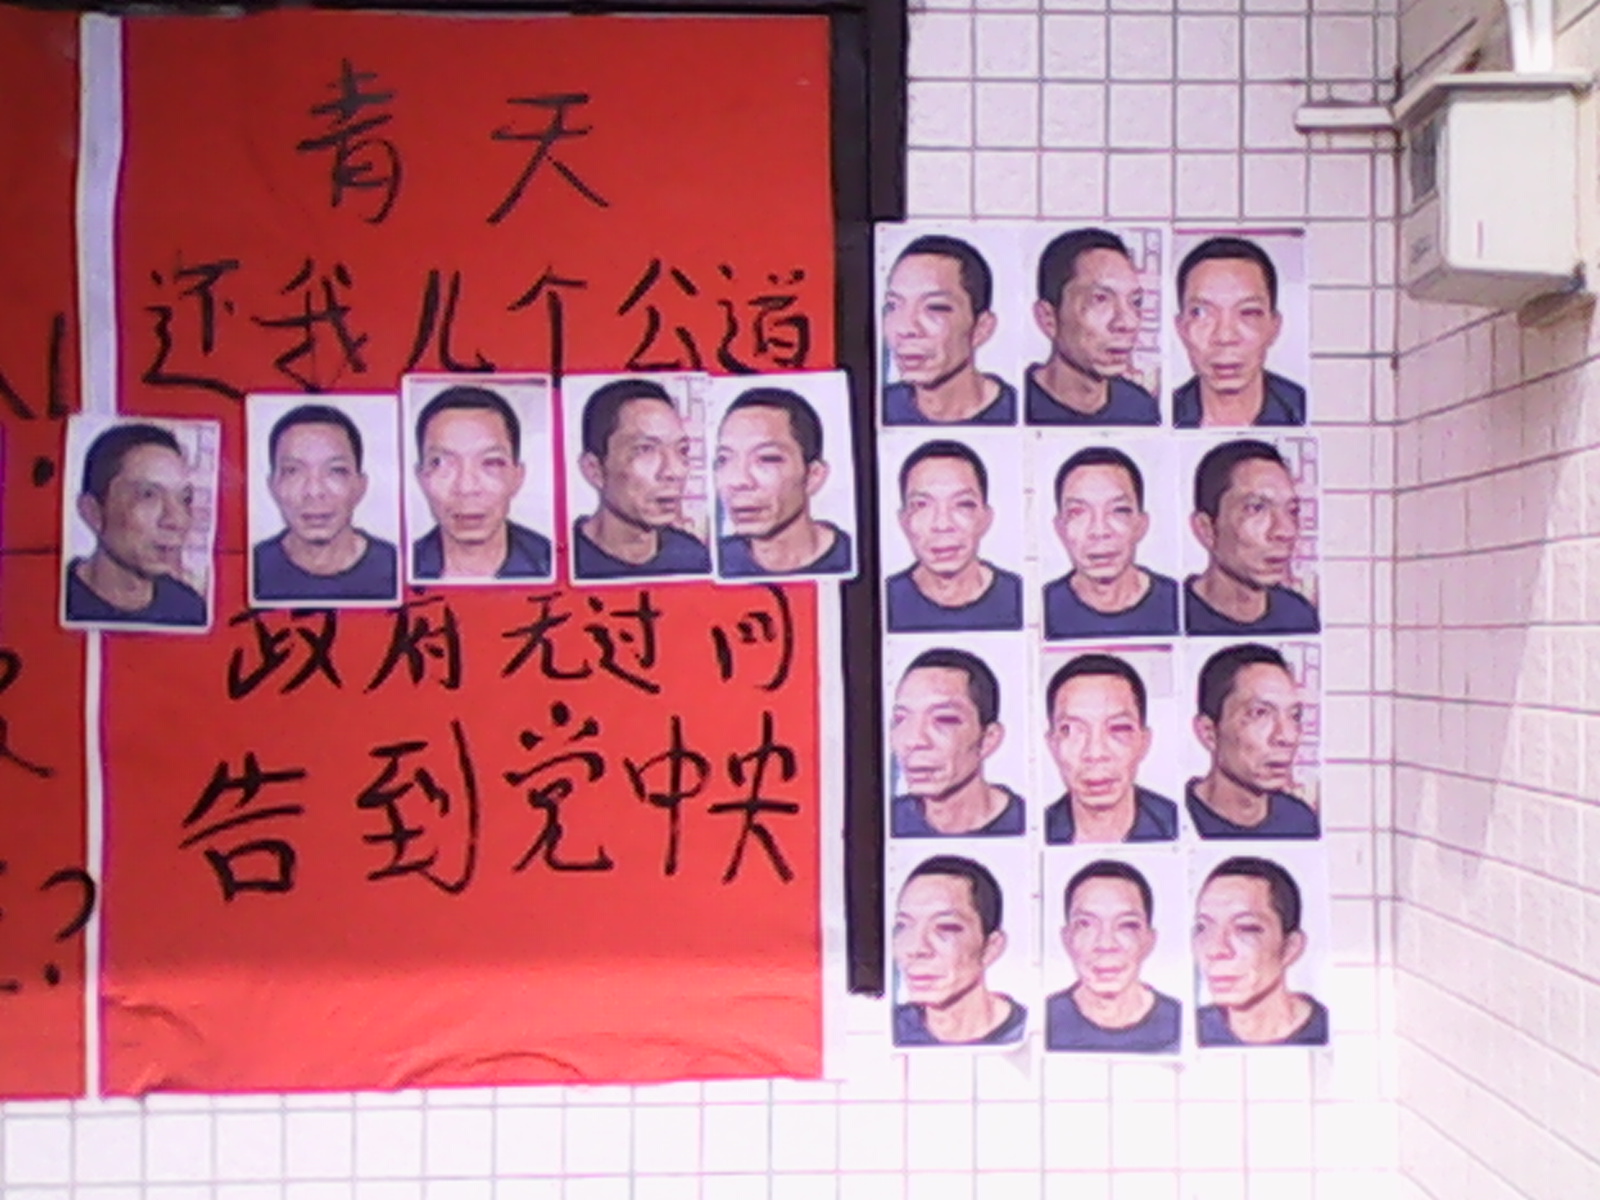 青天
还我儿个公道
政府无过问
告到党中央
?